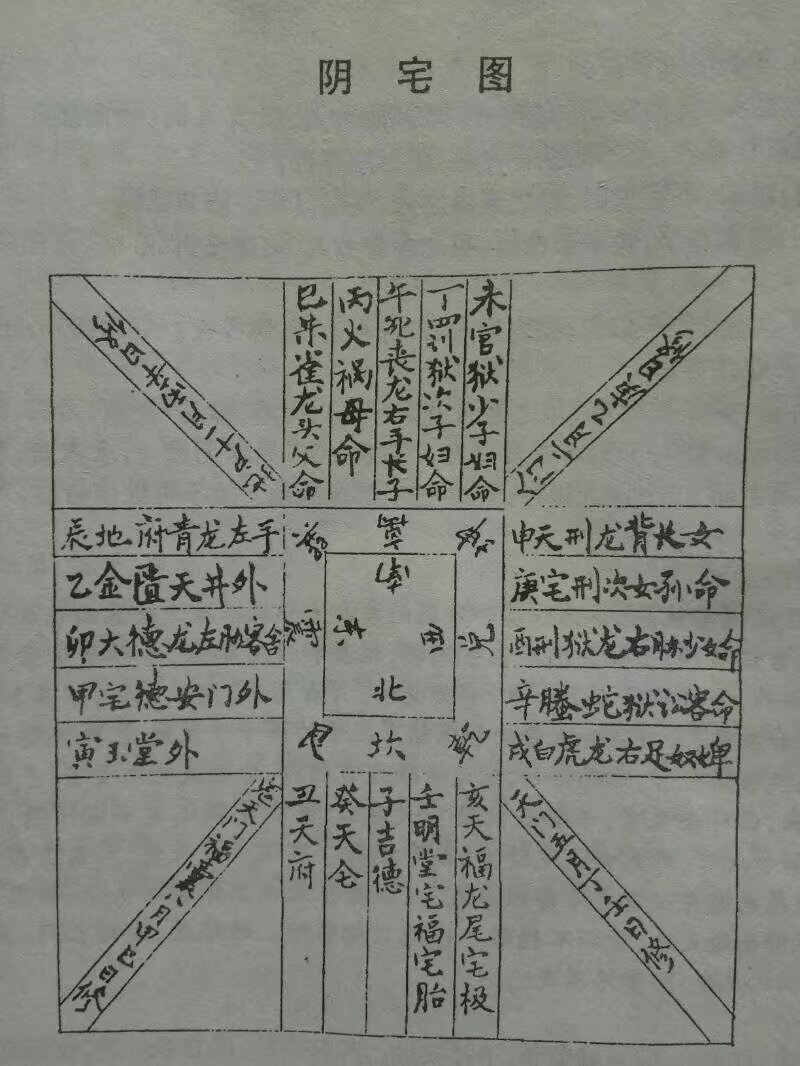 阴宅图
巳朱雀龙头父命
丙火祸母命
午死丧龙右手长子
丁四训狱次子妇命
未官狱少子妇命
辰地府青龙左手
乙金匮天井外
卯大德龙左胁客舍
甲宅德安门外
寅玉堂外
巽
离
坤
震
兑
艮
坎
乾
南
东
西
北
申天刑龙背长女
庚宅刑次女孙命
酉刑狱龙右胁少女命
辛螣蛇狱讼客命
戌白虎龙右足奴婢
丑天府
癸天仑
子吉德
壬明堂宅福宅胎
亥天福龙尾宅极
天门五月丁壬日修